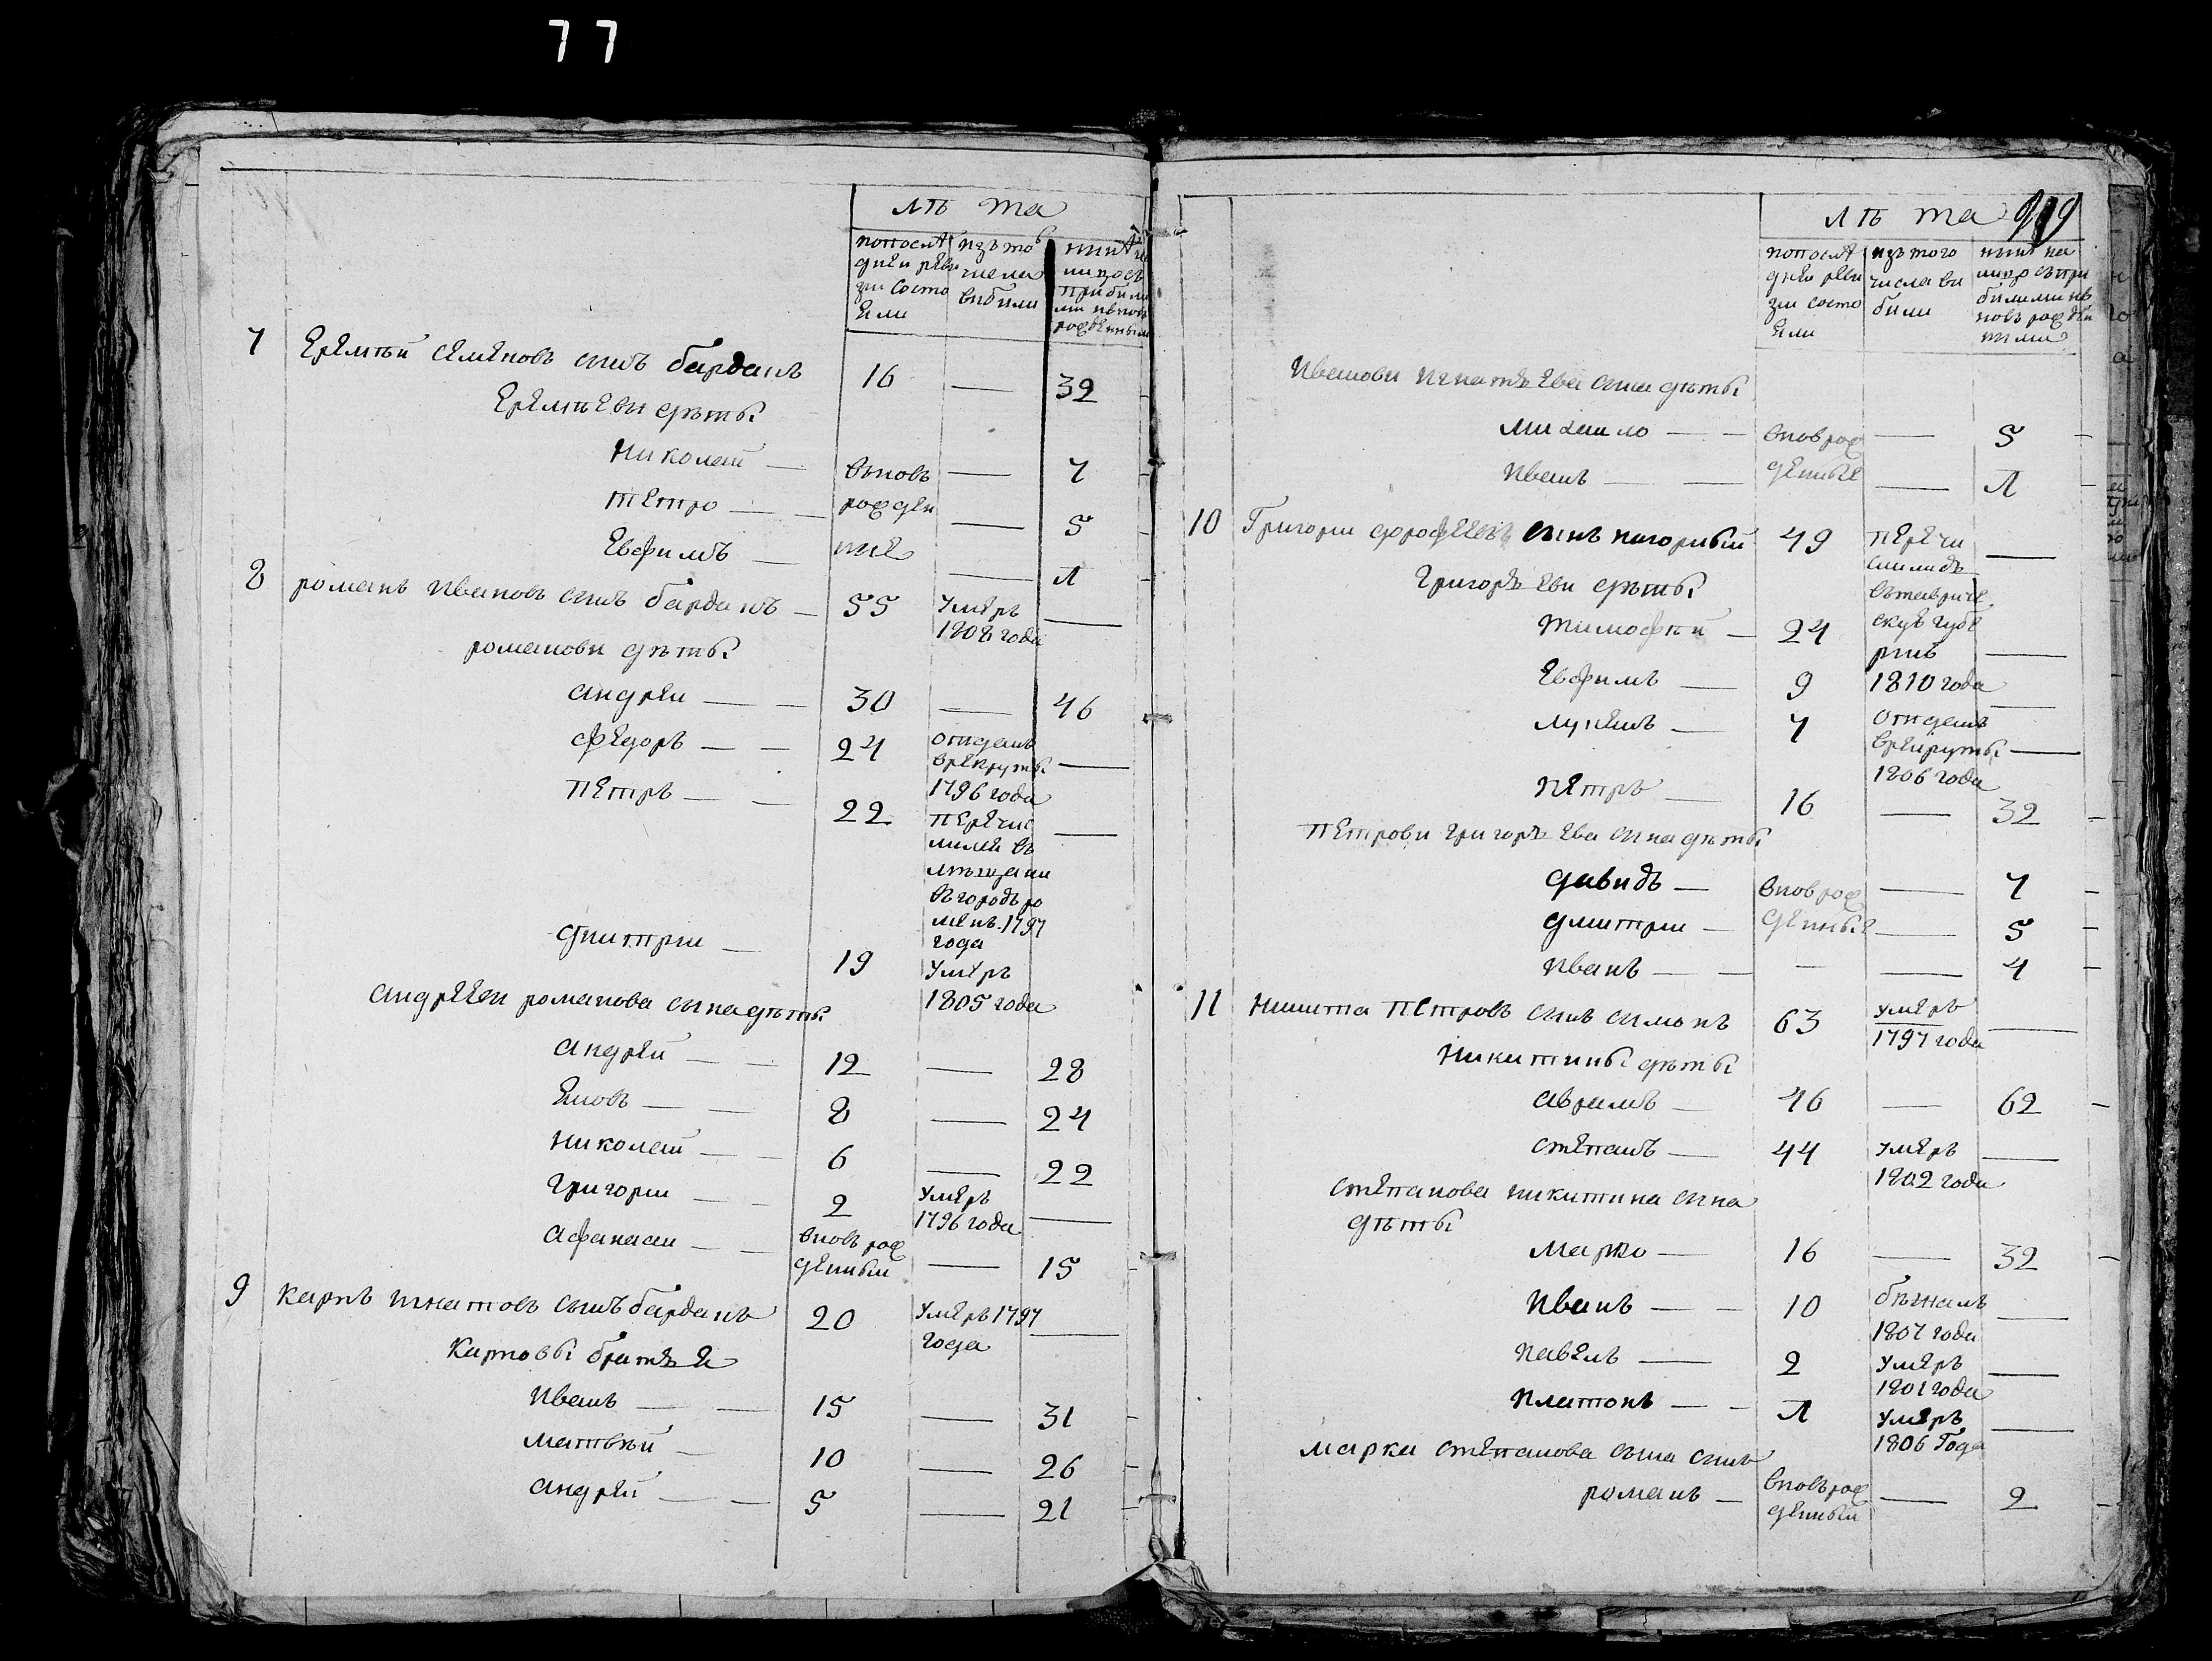 77
лѣ та
попослѣ дней реви зии состо яли
изъ того числа выбыли
7 Еремѣй семеновъ сынъ барданъ 16 — 32
Еремѣевы дѣты
николай — вьновь — 7
петро — рожден — 5
Евфимъ — ные — 1
8 романъ Ивановъ сынъ барданъ — 55 умеръ 1808 года —
романовы дѣты
андрей — 30 — 46
федоръ — 24 отданъ врекруты 1796 года —
петръ — 22 перечис
мѣщани
вгородъ ро
менъ 1797
года
дмитрии — 19 умеръ
1805 года
андреевы романова сына дѣты
андрей — 12 — 28
Яковъ — 8 — 24
николай — 6 — 22
григории — 2 умеръ 1796 года —
афанасии — вновь рож денный — 15
9 карпъ игнатовъ сынъ барданъ 20 умеръ 1797 года —
карповы братья
Иванъ — 15 — 31
матвѣй — 10 — 26
андрей — 5 — 21
лѣ та
попослѣ дней реви зии состо яли
изъ того числа вы были
нынѣ на лицо съпри былими и вновь рожден ными
Ивановы игнатьева сына дѣты
михаило — вновь рож — 5
Иванъ — денные — 1
10 Григории дорофеевъ сынъ нагорный 49 перечи
слилидь
вътавриче
скую губе
рнию
1810 года
григорьевы дѣты
тимофѣй — 24 —
Евфимъ — 9 —
лукянъ — 7 отданъ
врекруты —
1806 года
петръ — 16 — 32
петровы григорьева сына дѣты
давидъ — вновь рож — 7
дмитрии — денные — 5
Иванъ — — — 4
11 никита петровъ сынъ симонъ 63 умеръ 1797 года —
никитины дѣты
аврамъ — 46 — 62
степанъ — 44 умеръ 1802 года —
степанова никитина сына
дѣты
марко — 16 — 32
Иванъ — 10 бѣжалъ 1807 года —
павелъ — 2 умеръ 1801 года —
платонъ — 1 умеръ 1806 Года —
марка степанова сына сынъ
романъ — вновь рож денный — 2